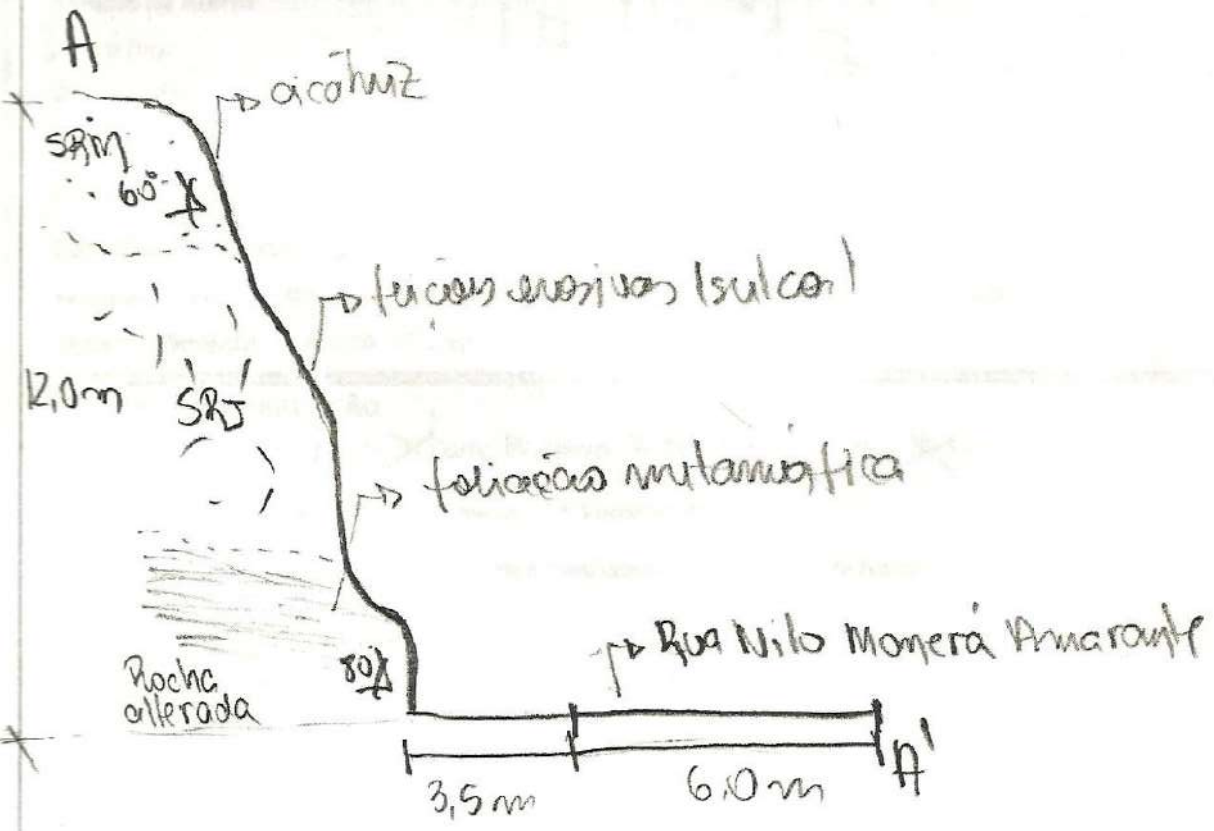 A
SRM
60°
feições erosivas (sulcos)
12,0m
SRJ
foliação metamórfica
Rocha
alterada
80
Rua Nilo Monerá Amarante
3,5m
6.0m
A'